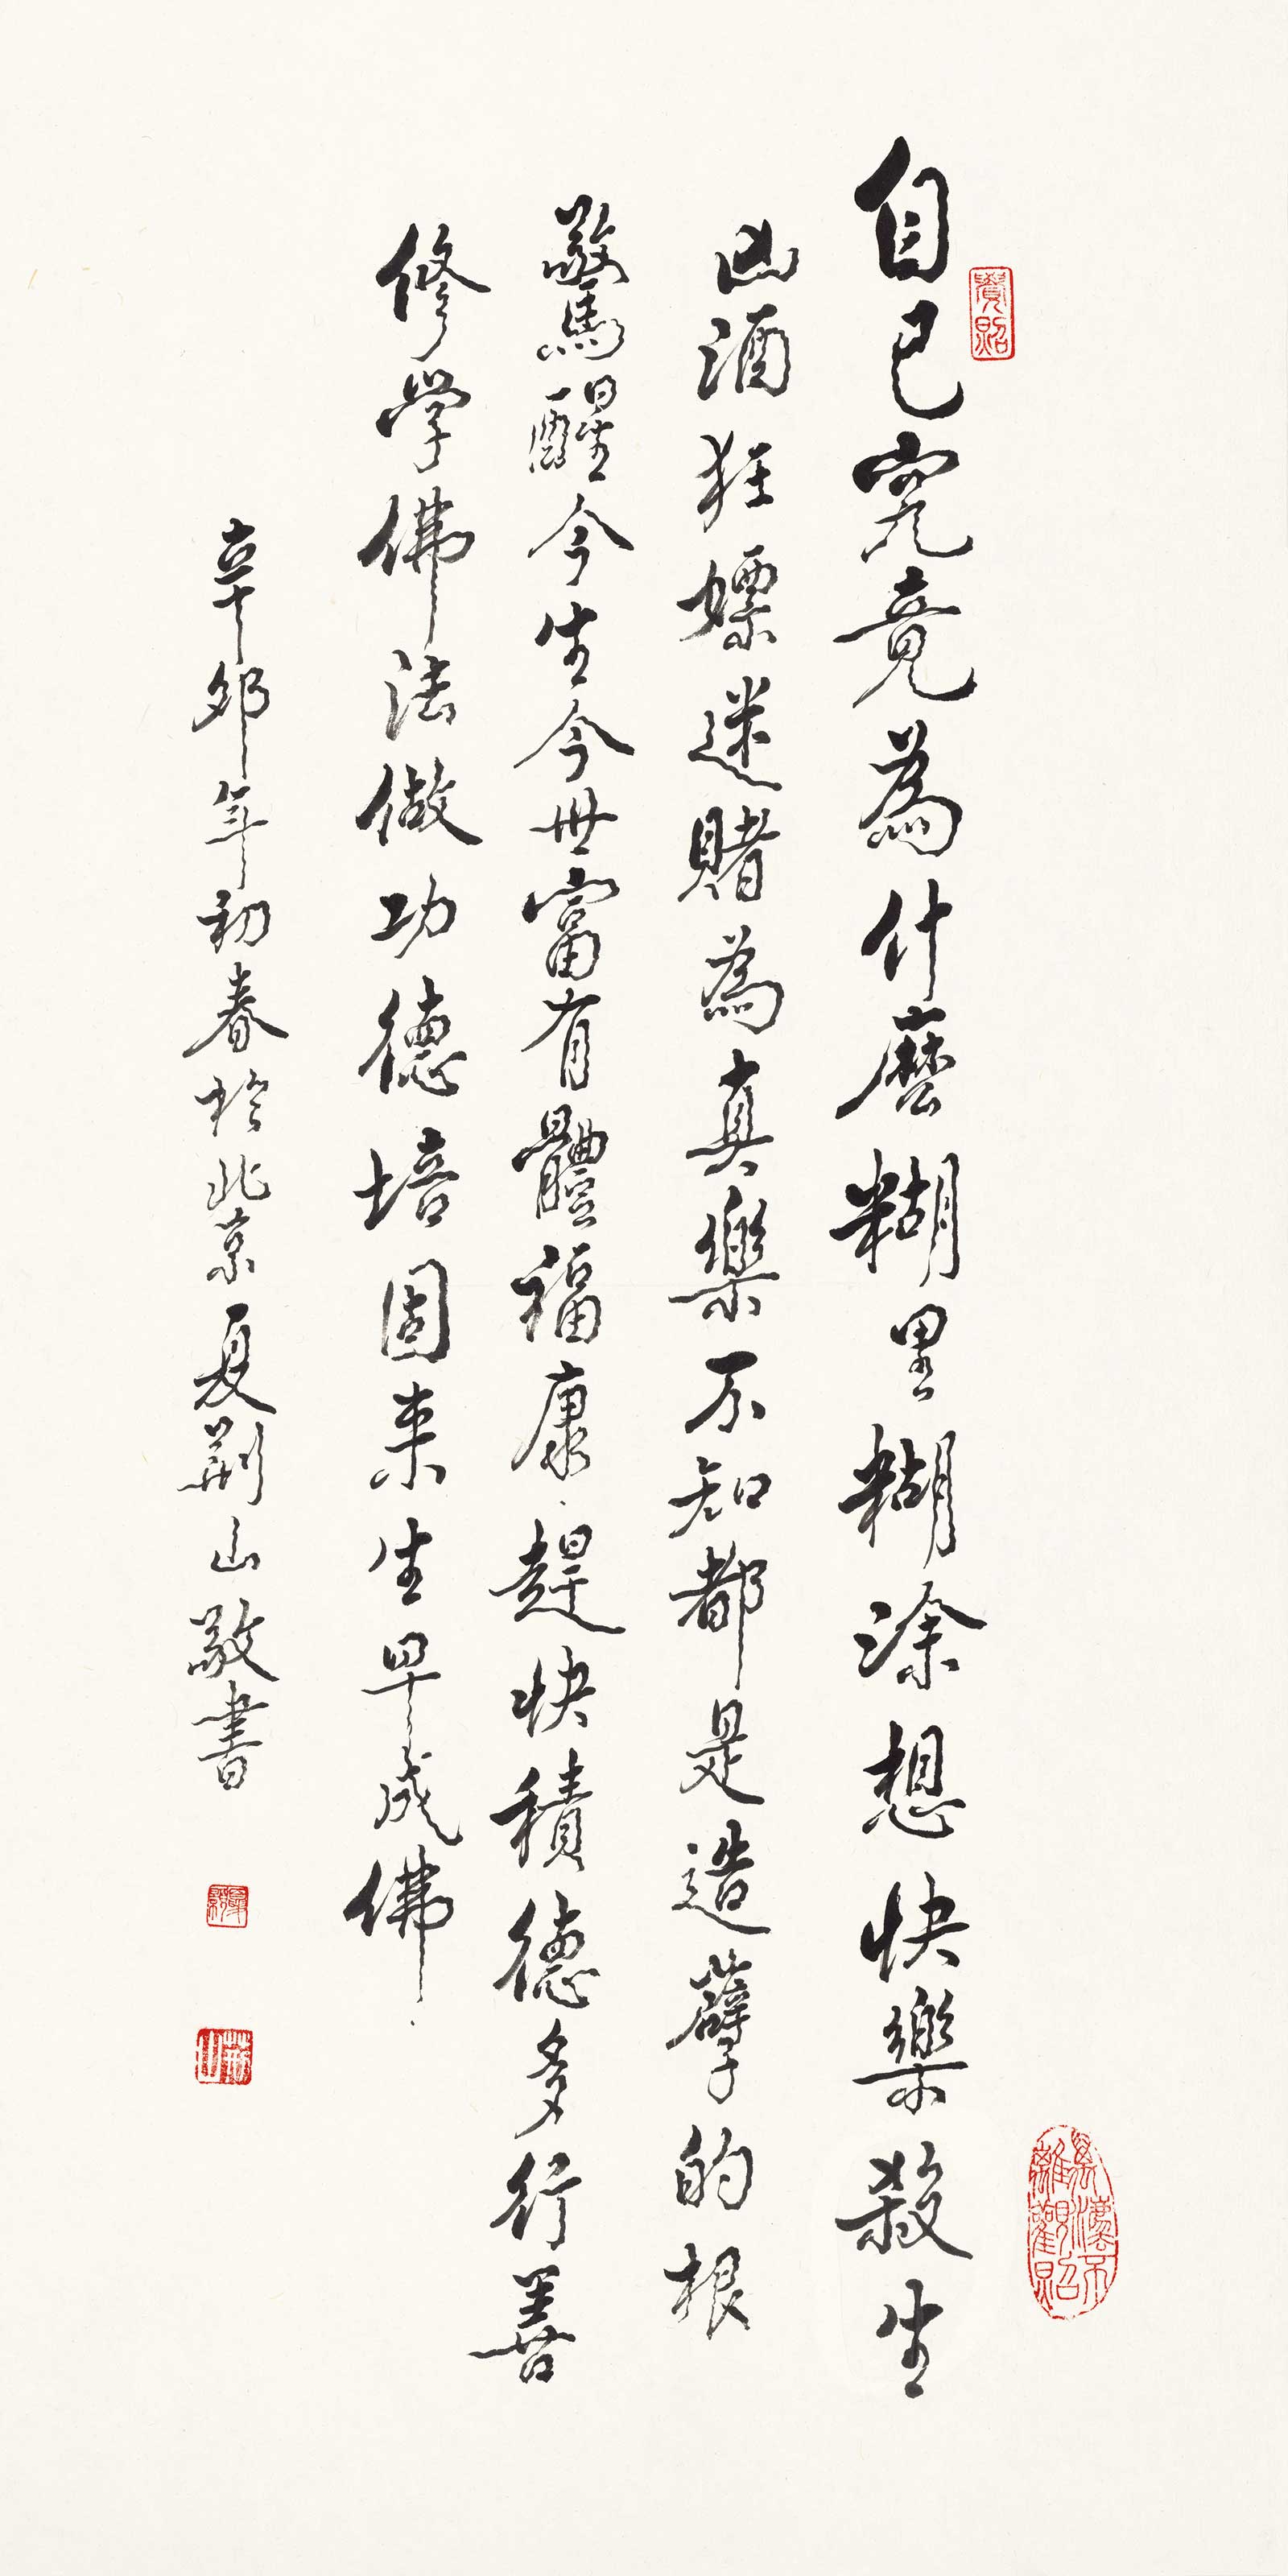 自己究竟為什麼糊里糊涂想快樂殺生
凶酒狂嫖迷賭為真樂不知都是造孽的根
驚醒今生今世富有體福康趕快積德多行善
修學佛法做功德培固来生早成佛
辛卯年初春於北京夏荆山敬書
荆山